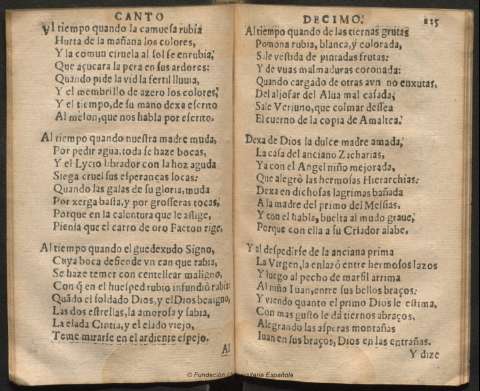 CANTO
Al tiempo quando la camuesa rubia
Hurta de la mañana los colores,
Y la comun ciruela al sol se enrubia,
Que açucara la pera en sus ardores:
Quando pide la vid la fertil lluuia,
Y el membrillo de azero los colores,
Y el tiempo, de su mano dexa escrito
Al melon, que nos habla por escrito.
Al tiempo quando nuestra madre muda,
Por pedir agua, toda se haze bocas,
Y el Lycio librador con la hoz aguda
Siega cruel sus esperanças locas:
Quando las galas de su gloria, muda
Por xerga basta, y por grosseras tocas,
Porque en la calentura que le aflige,
Piensa que el carro de oro Faeton rige.
Al tiempo quando el guedexudo Signo,
Cuya boca defiende vn can que rabia,
Se haze temer con centellear maligno,
Con q̃ en el huesped rubio infundiò rabia:
Quãdo el soldado Dios, y el Dios benigno,
Las dos estrellas, la amorosa y sabia,
La elada Cintia, y el elado viejo,
Teme mirarse en el ardiente espejo.
Al
DECIMO.
125
Al tiempo quando de las tiernas grutas
Pomona rubia, blanca, y colorada,
Sale vestida de pintadas frutas:
Y de vuas mal maduras coronada:
Quando cargado de otras aun no enxutas,
Del aljofar del Alua mal casada,
Sale Vertuno, que colmar dessea
El cuerno de la copia de Amaltea.
Dexa de Dios la dulce madre amada,
La casa del anciano Zacharias,
Ya con el Angel niño mejorada,
Que alegrò las hermosas Hierarchias:
Dexa en dichosas lagrimas bañada
A la madre del primo del Messias,
Y con el habla, buelta al mudo graue,
Porque con ella a su Criador alabe.
Y al despedirse de la anciana prima
La Virgen, la enlazò entre hermosos lazos
Y luego al pecho de marfil arrima
Al niño Iuan, entre sus bellos braços:
Y viendo quanto el primo Dios le estima,
Con mas gusto le dà tiernos abraços,
Alegrando las asperas montañas
Iuan en sus braços, Dios en las entrañas.
Y dize
© Fundación Universitaria Española